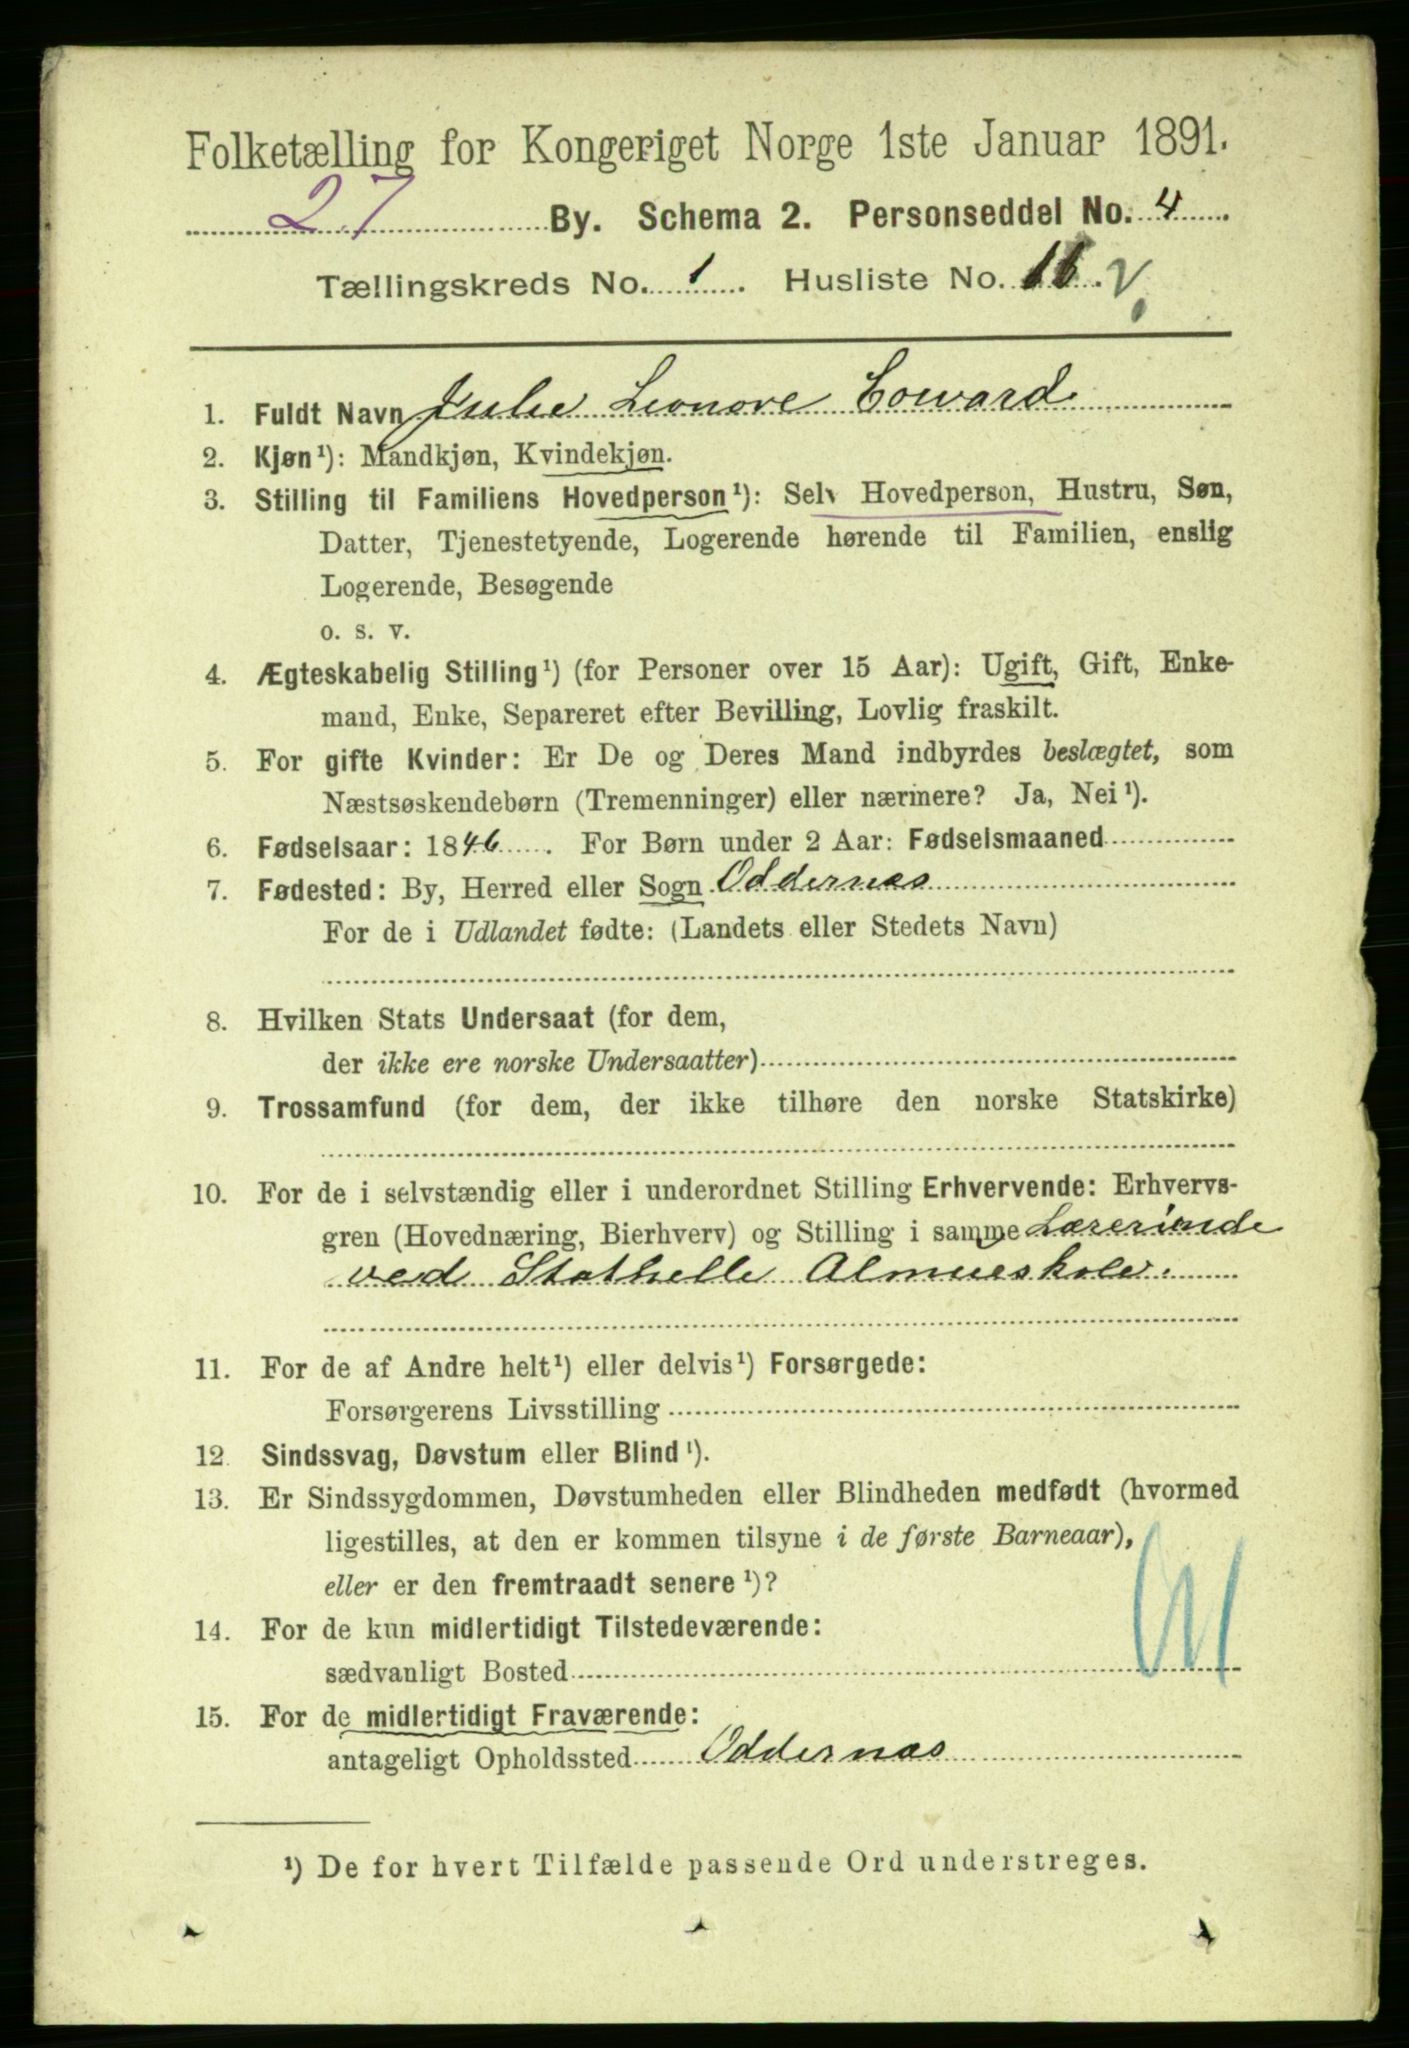 Folketælling for Kongeriget Norge 1ste Januar 1891.
27 By. Schema 2. Personseddel No. 4
Tællingskreds No. 1. Husliste No. 11. v.
1. Fuldt Navn Julie Leonore Coward.
2. Kjøn¹): Mandkjøn, Kvindekjøn.
3. Stilling til Familiens Hovedperson¹): Selv Hovedperson, Hustru, Søn,
Datter, Tjenestetyende, Logerende hørende til Familien, enslig
Logerende, Besøgende
o. s. v.
4. Ægteskabelig Stilling¹) (for Personer over 15 Aar): Ugift, Gift, Enke-
mand, Enke, Separeret efter Bevilling, Lovlig fraskilt.
5. For gifte Kvinder: Er De og Deres Mand indbyrdes beslægtet, som
Næstsøskendebørn (Tremenninger) eller nærmere? Ja, Nei¹).
6. Fødselsaar: 1846. For Børn under 2 Aar: Fødselsmaaned
7. Fødested: By, Herred eller Sogn Oddernæs
For de i Udlandet fødte: (Landets eller Stedets Navn)
8. Hvilken Stats Undersaat (for dem,
der ikke ere norske Undersaatter)
9. Trossamfund (for dem, der ikke tilhøre den norske Statskirke)
10. For de i selvstændig eller i underordnet Stilling Erhvervende: Erhvervs-
gren (Hovednæring, Bierhverv) og Stilling i samme Lærerinde
ved Stathelle Almueskole.
11. For de af Andre helt¹) eller delvis¹) Forsørgede:
Forsørgerens Livsstilling
12. Sindssvag, Døvstum eller Blind¹).
13. Er Sindssygdommen, Døvstumheden eller Blindheden medfødt (hvormed
ligestilles, at den er kommen tilsyne i de første Barneaar),
eller er den fremtraadt senere¹)?
14. For de kun midlertidigt Tilstedeværende:
sædvanligt Bosted
15. For de midlertidigt Fraværende:
antageligt Opholdssted Oddernæs
¹) De for hvert Tilfælde passende Ord understreges.